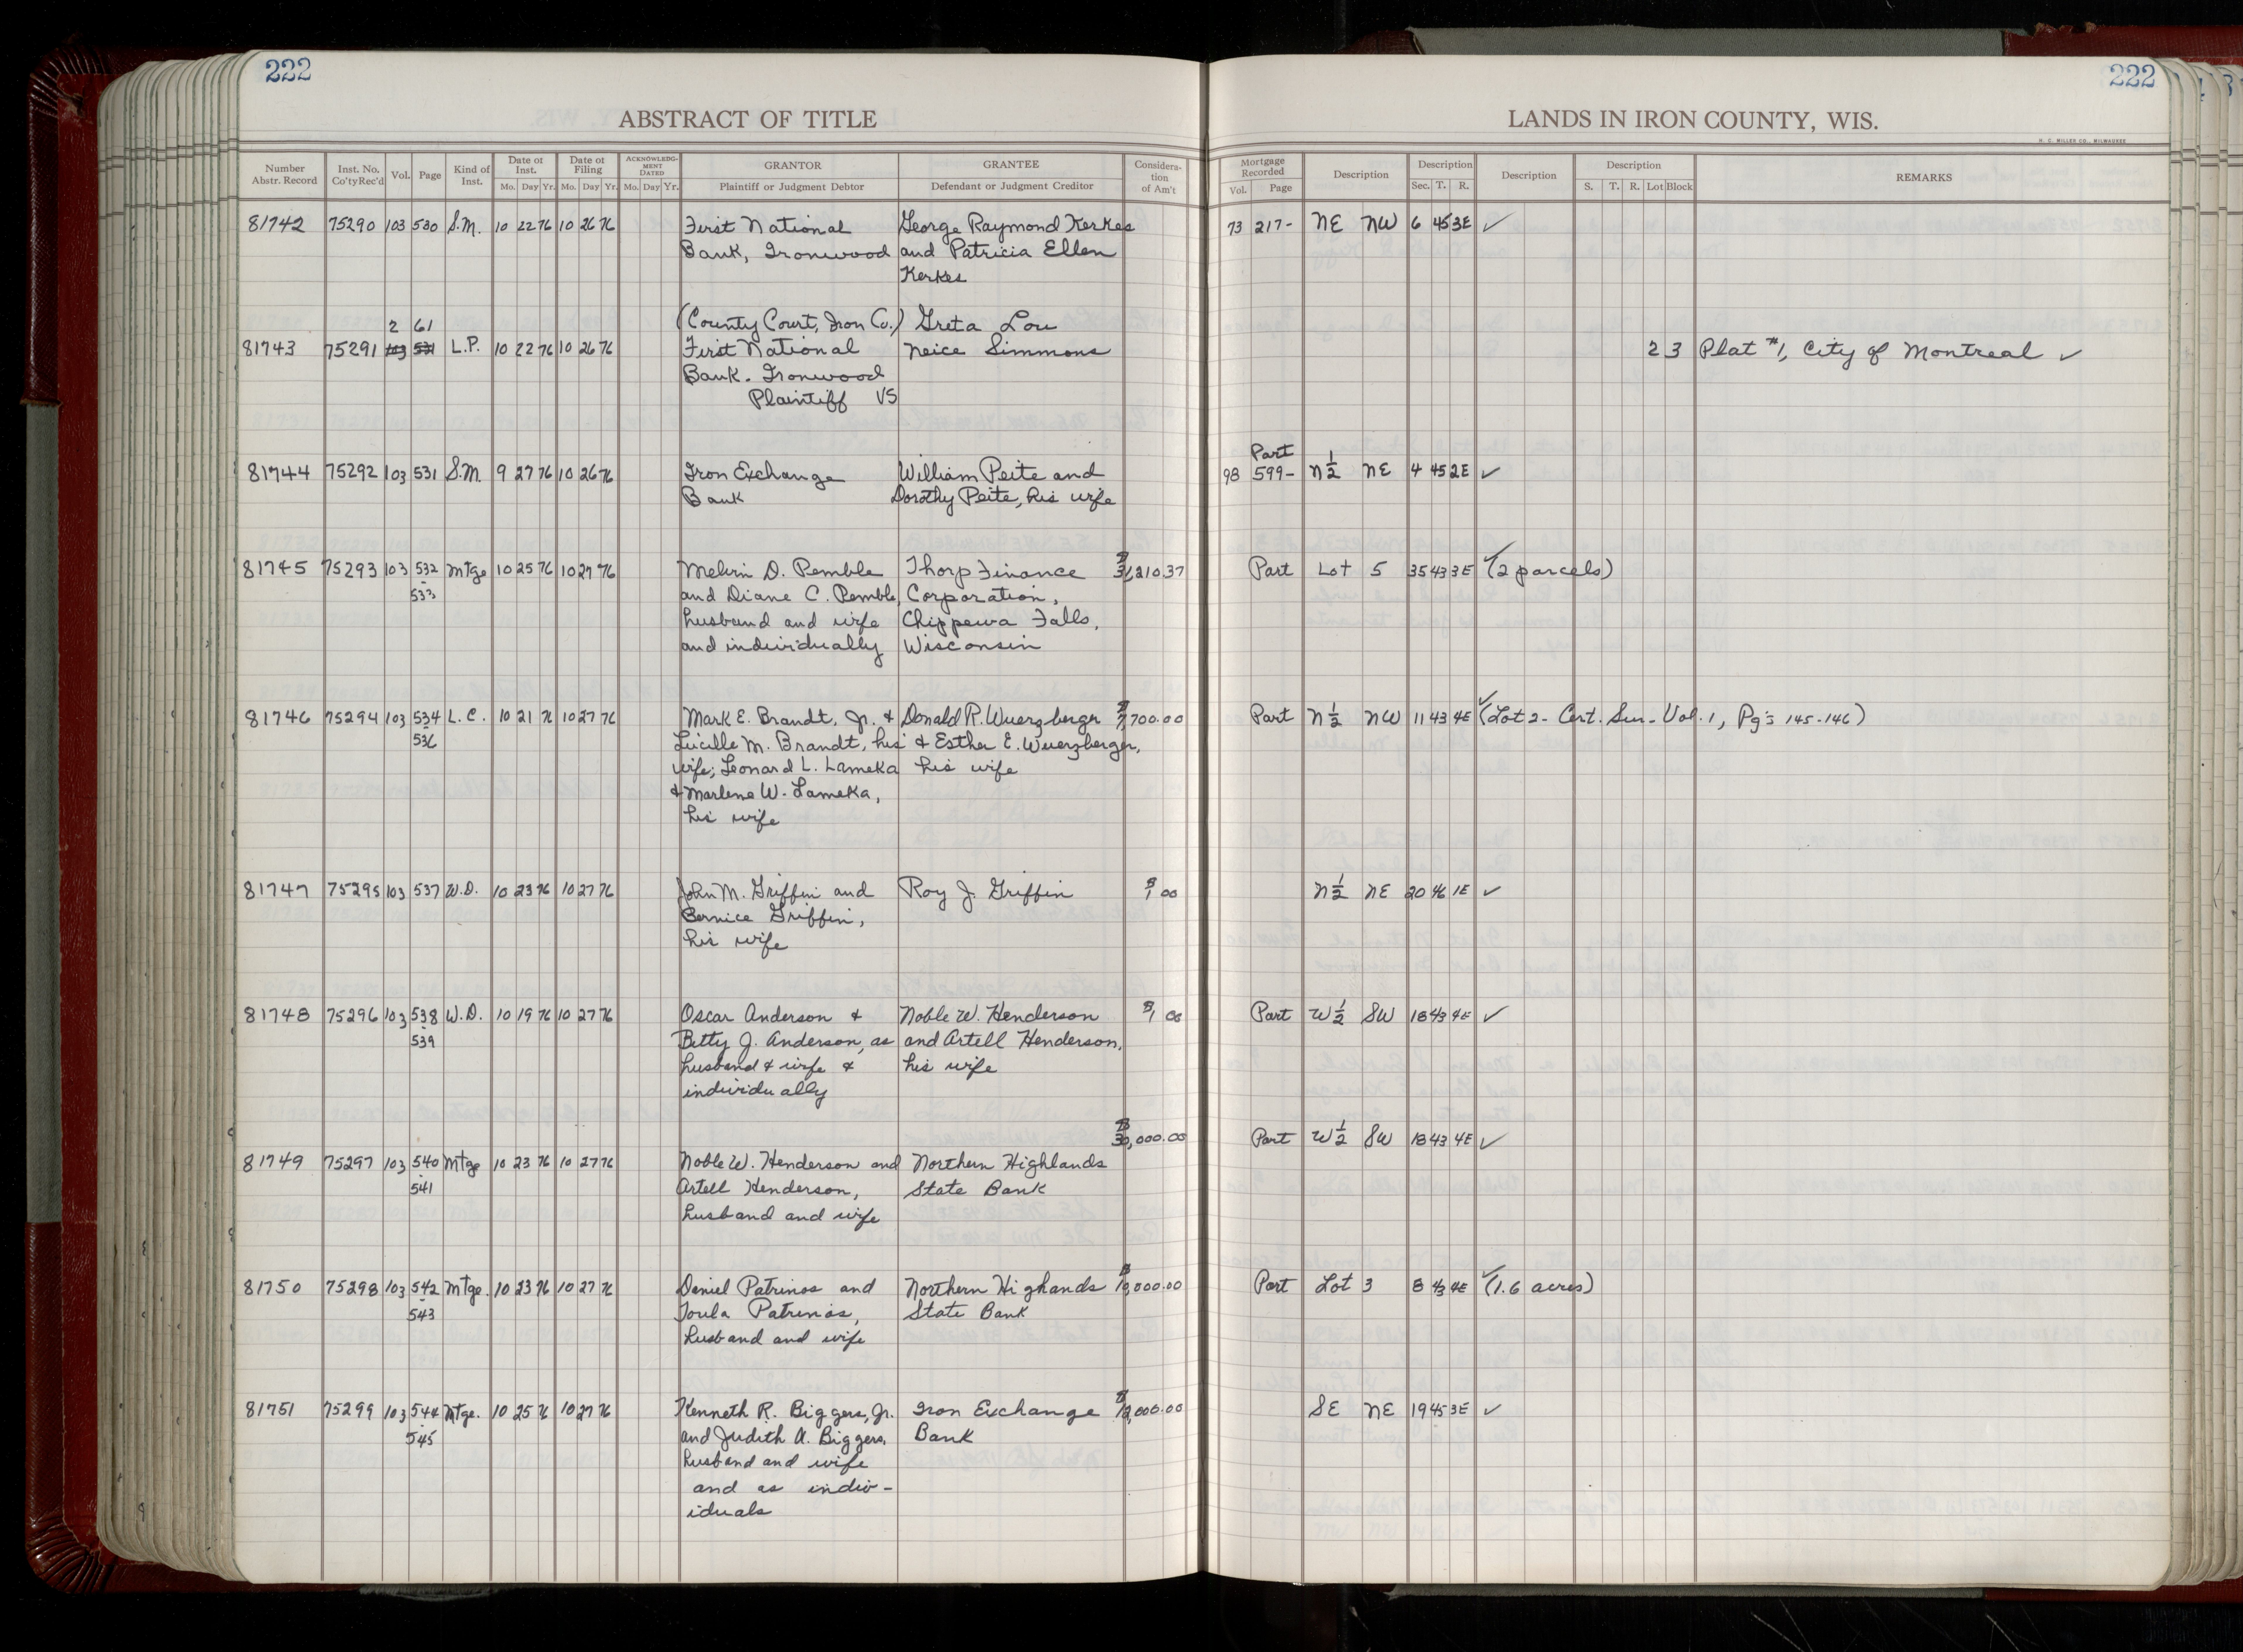 222
222
ABSTRACT OF TITLE
LANDS IN IRON COUNTY, WIS.
H. C. MILLER CO., MILWAUKEE
Number Abstr. Record | Inst. No. Co'ty Rec'd | Vol. | Page | Kind of Inst. | Date of Inst. Mo. Day Yr. | Date of Filing Mo. Day Yr. | ACKNOWLEDGMENT DATED Mo. Day Yr. | GRANTOR Plaintiff or Judgment Debtor | GRANTEE Defendant or Judgment Creditor | Consideration of Am't | Mortgage Recorded Vol. Page | Description | Description Sec. T. R. | Description | Description S. T. R. Lot Block | REMARKS
81742 75290 103 530 S.M. 10 22 76 10 26 76 First National George Raymond Kerkes 73 217- NE NW 6 45 3E ✓
Bank, Ironwood and Patricia Ellen
Kerkes
2 61 (County Court, Iron Co.) Greta Lou
81743 75291 103 531 L.P. 10 22 76 10 26 76 First National Neice Simmons 2 3 Plat #1, City of Montreal ✓
Bank. Ironwood
Plaintiff VS
Part
81744 75292 103 531 S.M. 9 27 76 10 26 76 Iron Exchange William Peite and 98 599- N½ NE 4 45 2E ✓
Bank Dorothy Peite, his wife
81745 75293 103 532 Mtge 10 25 76 10 27 76 Melvin D. Pemble Thorp Finance $31,210.37 Part Lot 5 35 43 3E ✓ (2 parcels)
- 533 and Diane C. Pemble, Corporation,
husband and wife Chippewa Falls,
and individually Wisconsin
81746 75294 103 534 L.C. 10 21 76 10 27 76 Mark E. Brandt, Jr. & Donald R. Wuerzberger $7,700.00 Part N½ NW 11 43 4E ✓ (Lot 2 - Cert. Sur. - Vol. 1, Pg's 145-146)
- 536 Lucille M. Brandt, his & Esther E. Wuerzberger,
wife; Leonard L. Lameka his wife
& Marlene W. Lameka,
his wife
81747 75295 103 537 W.D. 10 23 76 10 27 76 John M. Griffin and Roy J. Griffin $1 00 N½ NE 20 46 1E ✓
Bernice Griffin,
his wife
81748 75296 103 538 W.D. 10 19 76 10 27 76 Oscar Anderson & Noble W. Henderson $1 00 Part W½ SW 18 43 4E ✓
- 539 Betty J. Anderson, as and Artell Henderson,
husband & wife & his wife
individually
$30,000.00 Part W½ SW 18 43 4E ✓
81749 75297 103 540 Mtge 10 23 76 10 27 76 Noble W. Henderson and Northern Highlands
- 541 Artell Henderson, State Bank
husband and wife
81750 75298 103 542 Mtge. 10 23 76 10 27 76 Daniel Patrinos and Northern Highands $10,000.00 Part Lot 3 8 43 4E ✓ (1.6 acres)
- 543 Toula Patrinos, State Bank
husband and wife
81751 75299 103 544 Mtge. 10 25 76 10 27 76 Kenneth R. Biggers, Jr. Iron Exchange $12,000.00 SE NE 19 45 3E ✓
- 545 and Judith A. Biggers, Bank
husband and wife
and as indiv-
iduals